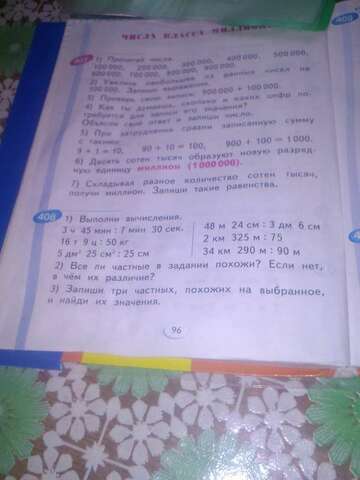 ЧИСЛА КЛАССА МИЛЛИОНОВ
407 1) Прочитай числа.
100 000, 200 000, 300 000, 400 000, 500 000,
600 000, 700 000, 800 000, 900 000.
2) Увеличь наибольшее из данных чисел на
100 000. Запиши выражение.
3) Проверь свою запись: 900 000 + 100 000.
4) Как ты думаешь, сколько и каких цифр по-
требуется для записи его значения?
Объясни свой ответ и запиши число.
5) При затруднении сравни записанную сумму
с такими:
9 + 1 = 10, 90 + 10 = 100, 900 + 100 = 1 000.
6) Десять сотен тысяч образуют новую разряд-
ную единицу миллион (1 000 000).
7) Складывая разное количество сотен тысяч,
получи миллион. Запиши такие равенства.
408 1) Выполни вычисления.
3 ч 45 мин : 1 мин 30 сек. 48 м 24 см : 3 дм 6 см
16 т 9 ц : 50 кг 2 км 325 м : 75
5 дм² 25 см² : 25 см 34 км 290 м : 90 м
2) Все ли частные в задании похожи? Если нет,
в чём их различие?
3) Запиши три частных, похожих на выбранное,
и найди их значения.
96